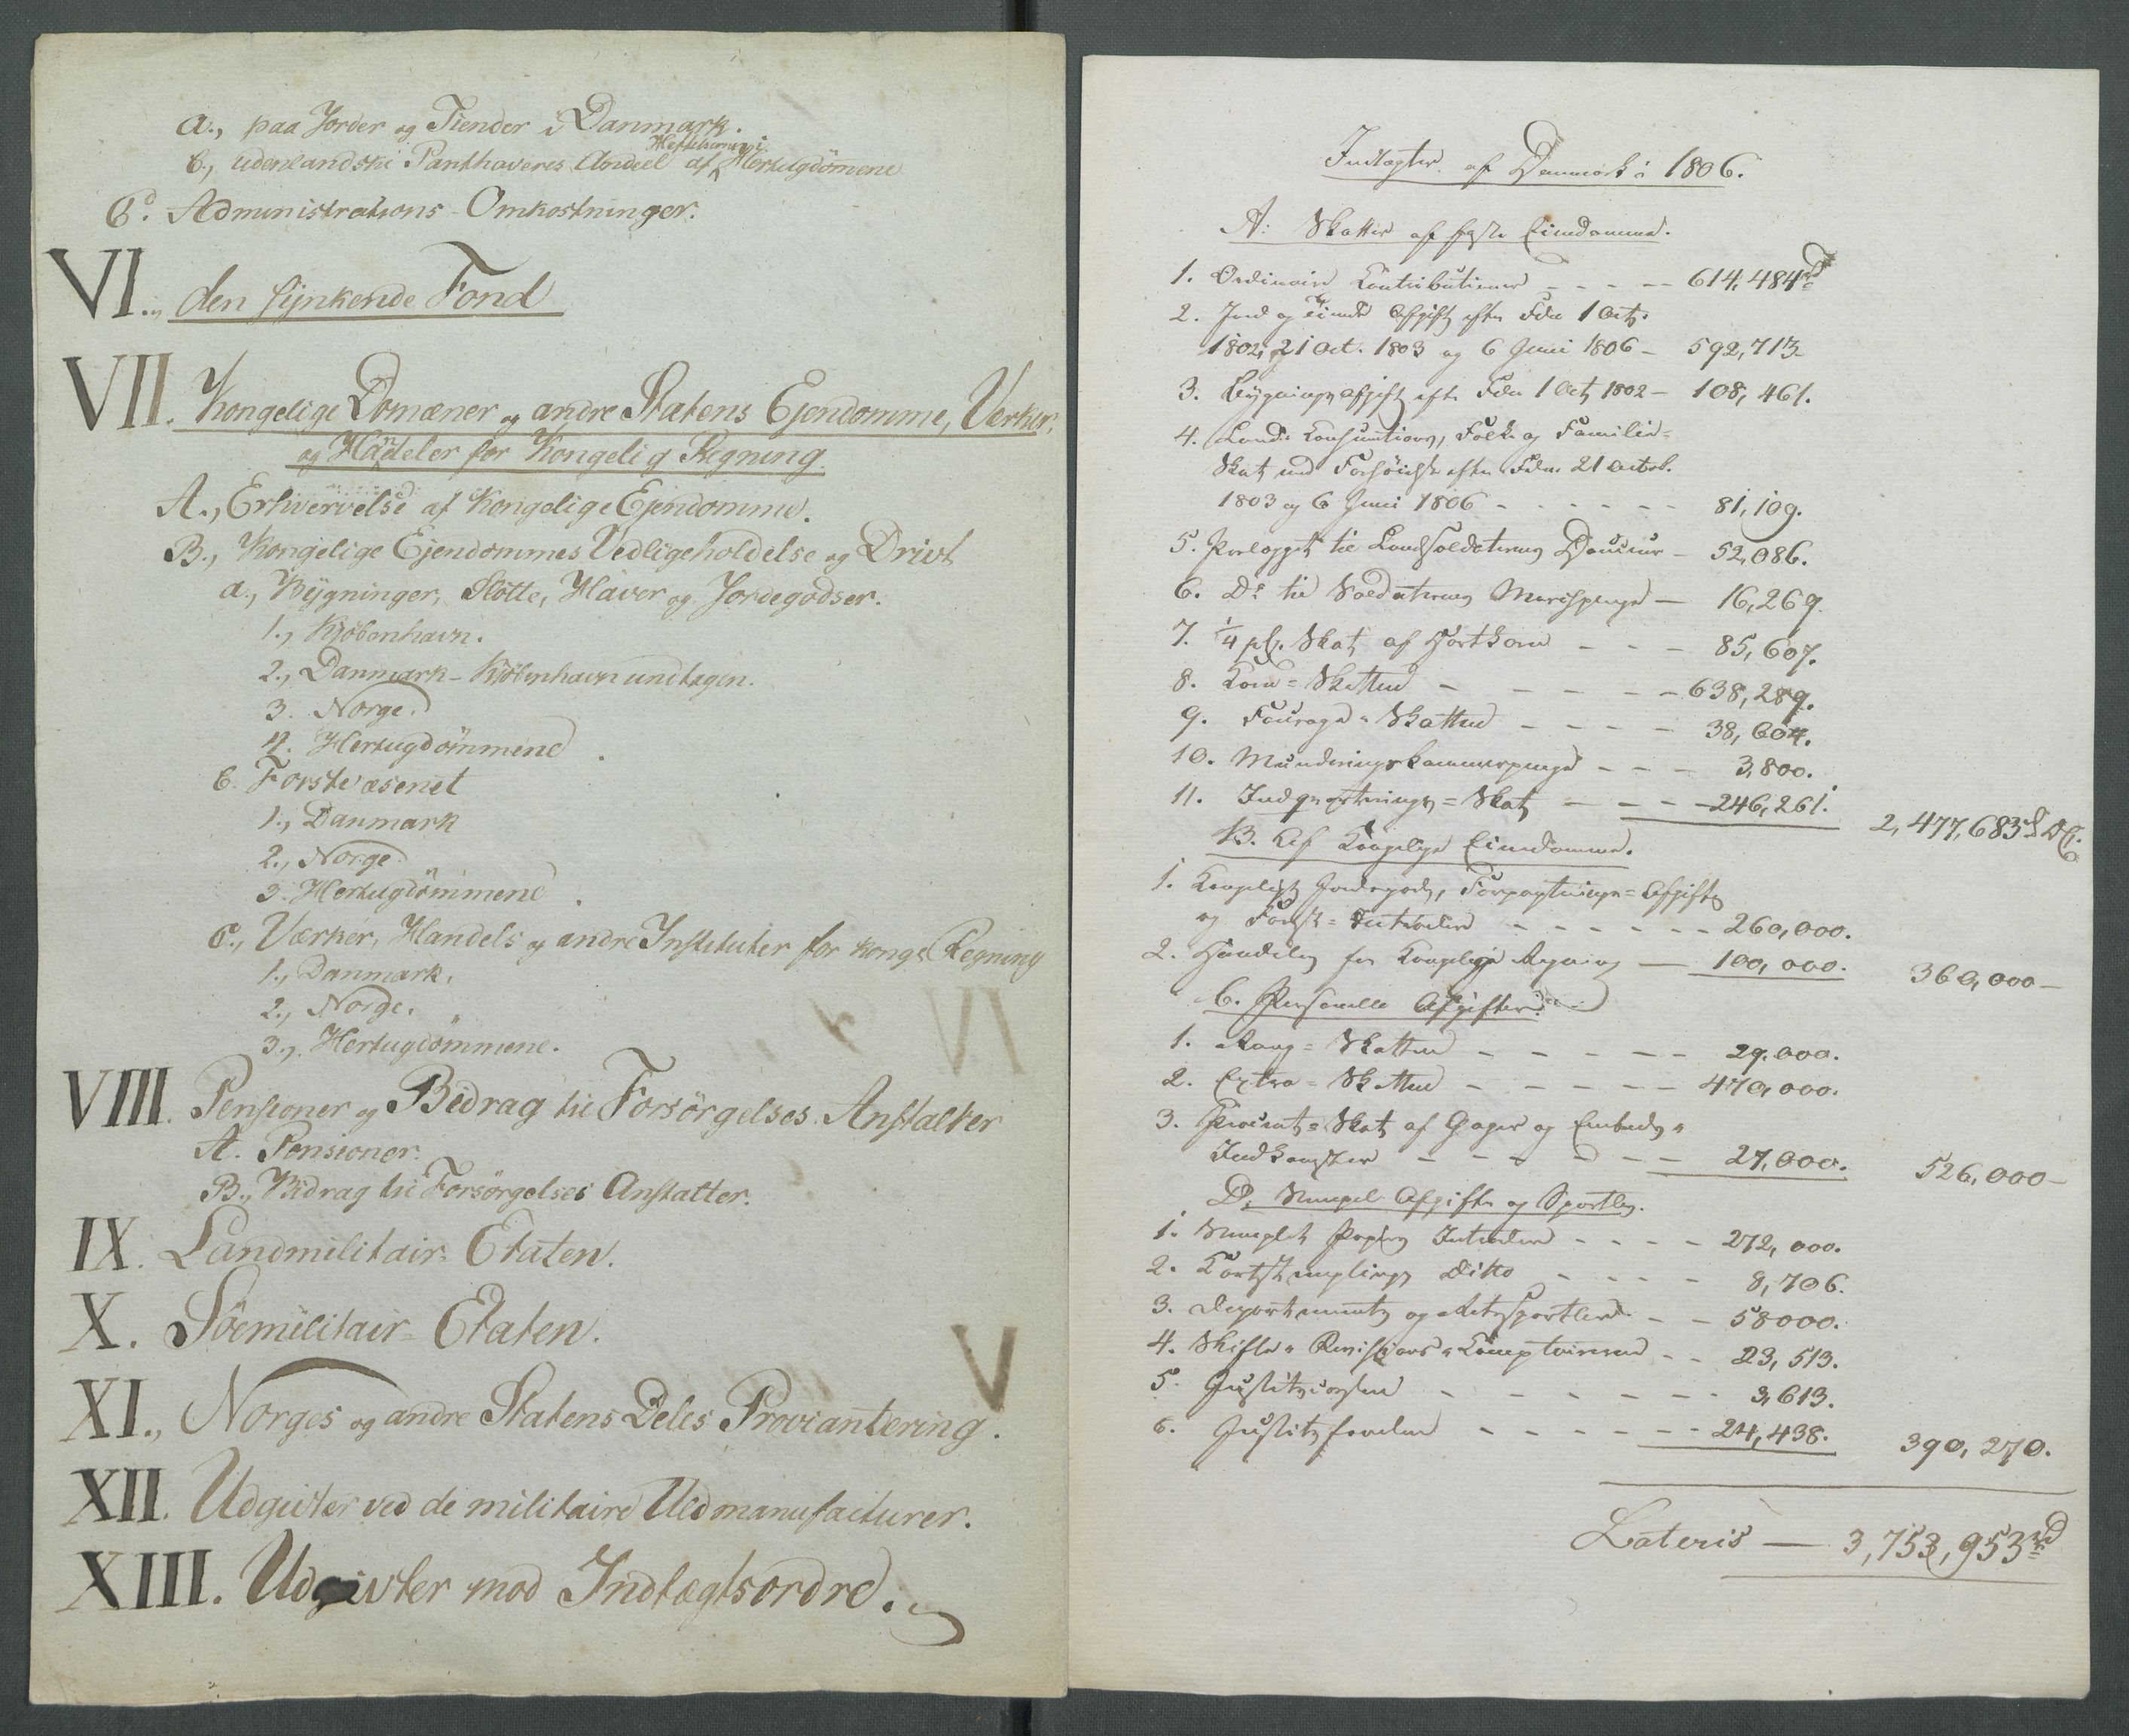 a., paa Jorder og Tiender i Danmark.
b., udenlandske Panthaveres Andeel af Hertugdömene
C. Administrations-Omkostninger.
VI., den synkende Fond
VII. Kongelige Domæner og andre Statens Ejendomme, Værker,
og Handeler for Kongelig Regning.
A., Erhvervelse af Kongelige Ejendomme.
B., Kongelige Ejendommes Vedligeholdelse og Drivt
a., Bÿgninger, Slotte, Haver og Jordegodser.
1., Kjöbenhavn.
2., Danmark - Kjöbenhavn undtagen.
3. Norge.
4. Hertugdömmene
b. Forstvæsenet
1., Danmark
2., Norge.
3. Hertugdömmene
c., Værker, Handels og andre Instituter for kongel Regning
1., Danmark.
2., Norge.
3., Hertugdömmene.
VIII. Pensioner og Bidrag til Forsörgelses Anstalter
A. Pensioner.
B., Bidrag til Forsörgelses Anstalter.
IX. Landmilitair-Etaten.
X. Söemilitair-Etaten.
XI., Norges og andre Statens Deles Proviantering.
XII. Udgivter ved de militaire Uldmanufacturer.
XIII. Udgivter mod Indtægtsordre.
V
Indtægter af Danmark i 1806.
A: Skatter af faste Eiendomme.
1. Ordinaire Contributioner - - - - 614,484 rd
2. Jord og Tiende Afgift efter Fdn 1 Oct.
1802, 21 Oct. 1803 og 6 Juni 1806 - 592,713
3. Bygningsafgift efter Fdn 1 Oct 1802 - 108,461.
4. Lands Consumtions, Folke og Familie=
Skat med Forhöielse efter Fdn. 21 Octob.
1803 og 6 Juni 1806 - - - - - - 81,109.
5. Paalægget til Landsoldaternes Douceur - 52,086.
6. Do til Soldaternes Marchpenge - 16,269.
7. 1/4 pC. Skat af Hartkorn - - - 85,607.
8. Korn=Skatten - - - - - 638,289.
9. Fourage=Skatten - - - - 38,604.
10. Munderingskammerpenge - - - 3,800.
11. Indqvarterings=Skat - - - - 246,261.
2,477,683 rd DC.
B. Af Kongelige Eiendomme.
1. Kongeligt Jordegods, Forpagtnings=Afgifter
og Forst=Intrader - - - - - - 260,000.
2. Handelen for Kongelige Regning - 100,000. 360,000 -
C. Personelle Afgifter.
1. Rang=Skatten - - - - - 29,000.
2. Extra=Skatten - - - - - 470,000.
3. Procent=Skat af Gager og Embeds=
Indkomster - - - - - - 27,000. 526,000 -
D, Stempel Afgifter og Sportler.
1. Stemplet Papiirs Intrader - - - - 272,000.
2. Kortstemplings Ditto - - - - 8,706.
3. Departements og Retssportlerne - - 58000.
4. Skifte=Revisions=Comptoirerne - - 23,513.
5. Justitscassen - - - - - - 3,613.
6. Justitsfonden - - - - - - 24,438. 390,270.
Lateris - 3,753,953 rd